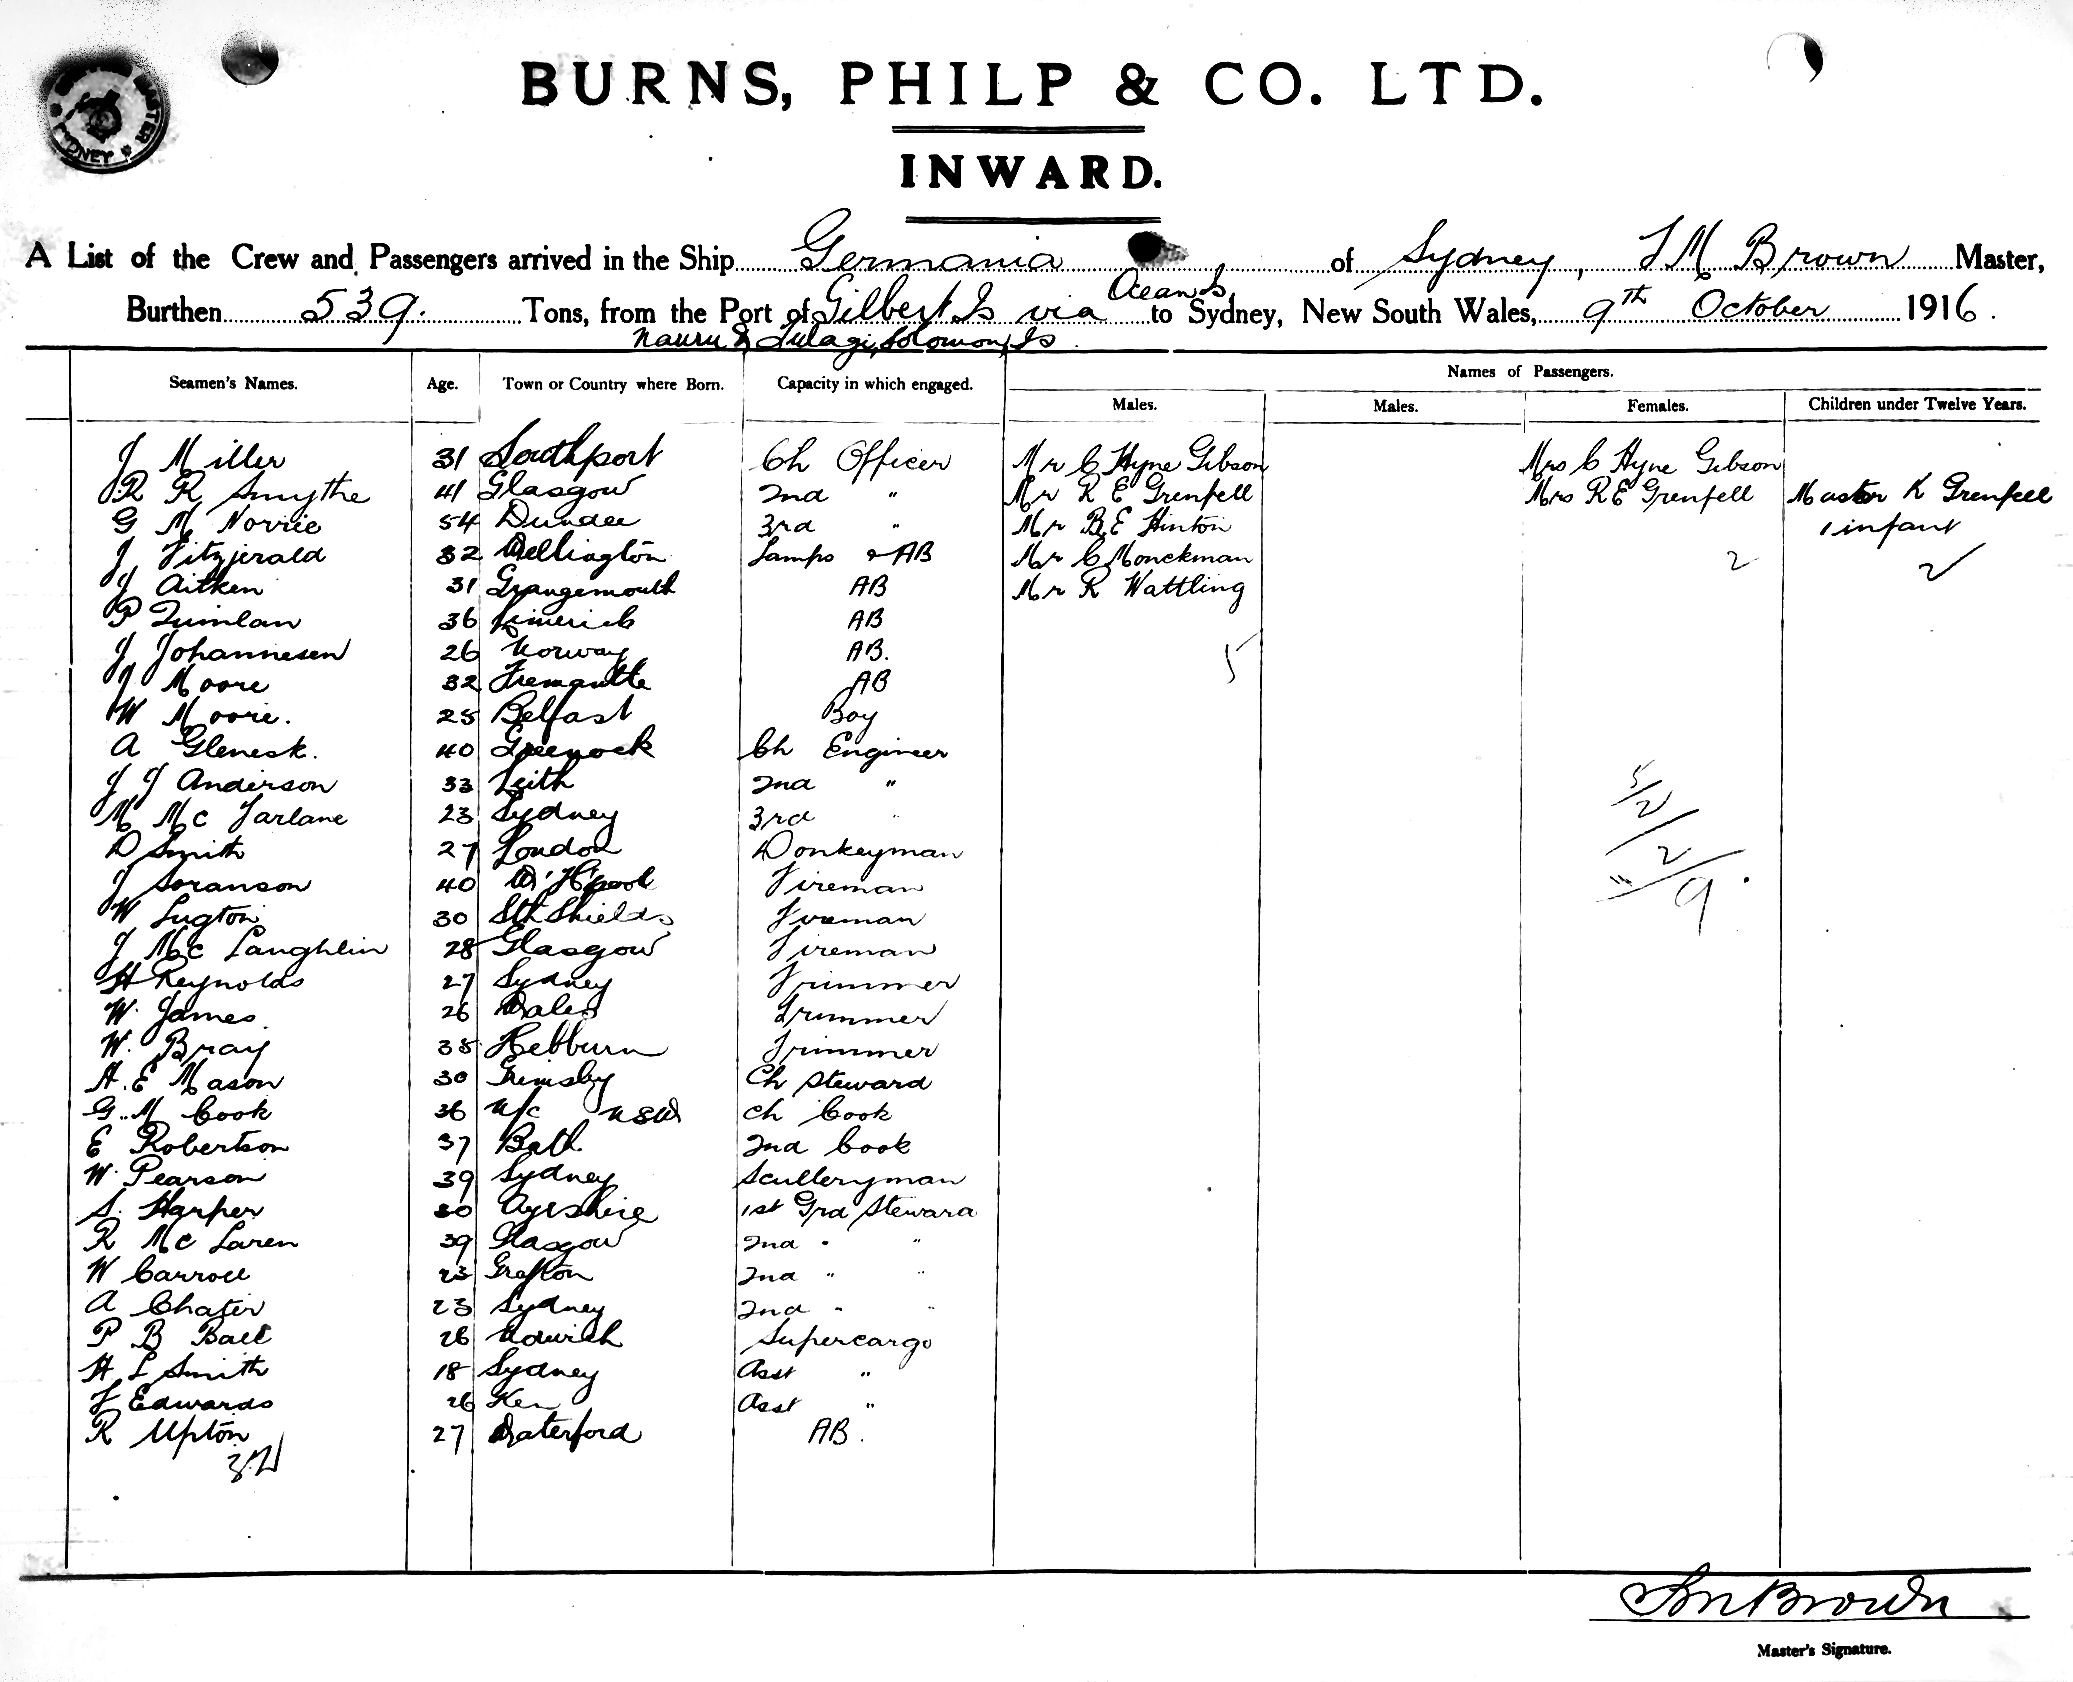 BURNS, PHILP & CO. LTD.
INWARD.
A List of the Crew and Passengers arrived in the Ship Germania of Sydney, T M Brown Master,
Ocean Is
Burthen 539. Tons, from the Port of Gilbert Is via to Sydney, New South Wales, 9th October 1916.
Nauru & Tulagi, Solomon Is
Names of Passengers.
Seamen's Names. Age. Town or Country where Born. Capacity in which engaged.
Males. Males. Females. Children under Twelve Years.
J Miller 31 Southport Ch Officer Mr C Hyne Gibson Mrs C Hyne Gibson
R R Smythe 41 Glasgow 2nd " Mr R E Grenfell Mrs R E Grenfell Master K Grenfell
G M Norrie 54 Dundee 3rd " Mr B.E Hinton 1 infant
J Fitzjerald 32 Wellington Lamps & AB Mr C Monckman 2 2
J Aitken 31 Grangemouth AB Mr R Wattling
P Quinlan 36 Limerick AB
J Johannesen 26 Norway AB. 5
J Moore 32 Fremantle AB
W Moore. 25 Belfast Boy
A Glenesk. 40 Greenock Ch Engineer
J J Anderson 33 Leith 2nd " 5/2/2/9
M McFarlane 23 Sydney 3rd "
D Smith 27 London Donkeyman
J Soranson 40 W. H'pool Fireman
W Lugton 30 Sth Shields Fireman
J McLaughlin 28 Glasgow Fireman
H Reynolds 27 Sydney Trimmer
W. James 26 Wales Trimmer
W. Bray 38 Hebburn Trimmer
H. E Mason 30 Grimsby Ch Steward
G. M Cook 36 N/c NSW Ch Cook
E Robertson 37 Bath 2nd Cook
W. Pearson 39 Sydney Sculleryman
S. Harper 30 Ayrshire 1st Grd Steward
R McLaren 39 Glasgow 2nd " "
W Carroll 23 Grafton 2nd " "
A Chater 23 Sydney 2nd " "
P B Ball 26 Norwich Supercargo
H L Smith 18 Sydney Asst "
F Edwards 26 Asst "
R Upton 27 Waterford AB.
TM Brown
Master's Signature.